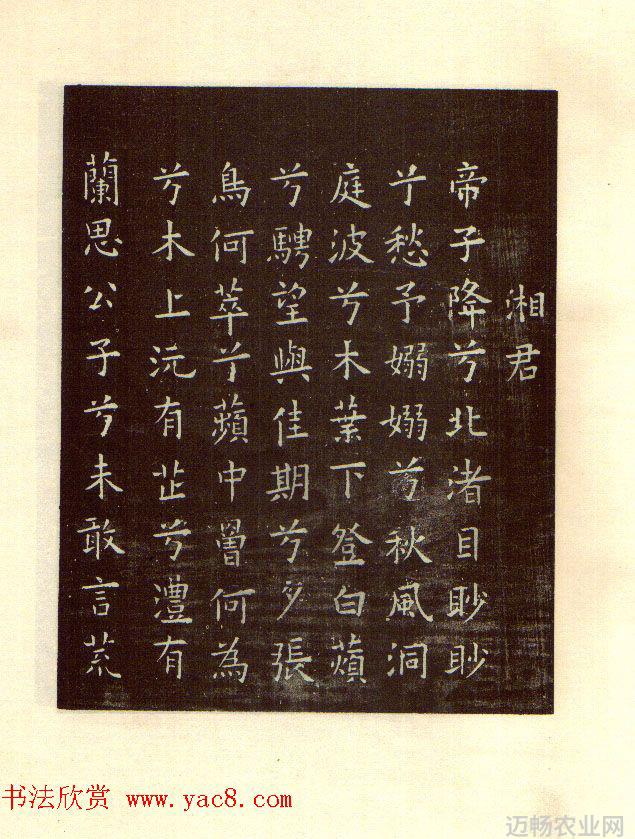 湘君
帝子降兮北渚目眇眇
兮愁予嫋嫋兮秋風洞
庭波兮木葉下登白蘋
兮騁望與佳期兮夕張
鳥何萃兮蘋中罾何為
兮木上沅有芷兮澧有
蘭思公子兮未敢言荒
书法欣赏 www.yac8.com
迈畅农业网